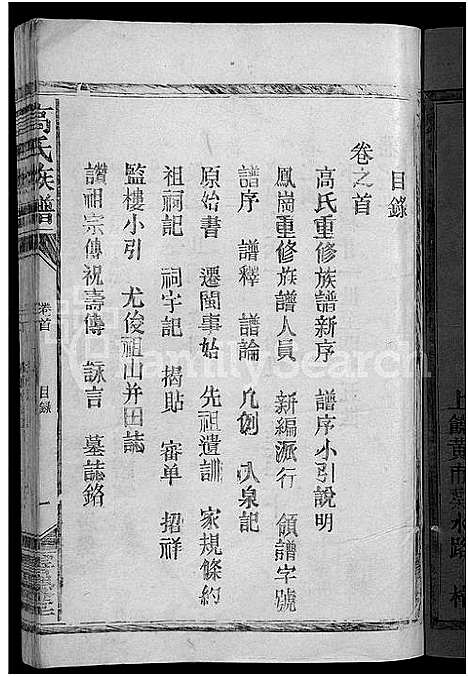 目錄
卷之首
高氏重修族譜新序 譜序小引說明
鳳崗重修族譜人員 新編派行 領譜字號
譜序 譜釋 譜論 凡例 入泉記
原始書 遷閩事始 先祖遺訓 家規條約
祖祠記 祠字記 揭貼 審单 招祥
監樓小引 尤俊祖山并田誌
讃祖宗傳祝壽傳 詠言 墓誌銘
高氏族譜
卷首
目錄
一
FamilySearch